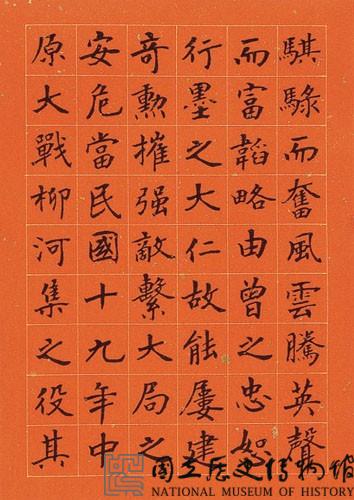 騏騄而奮風雲騰英聲
而富韜略由曾之忠恕
行墨之大仁故能屢建
奇勳摧强敵繫大局之
安危當民國十九年中
原大戰柳河集之役其
國立歷史博物館
NATIONAL MUSEUM OF HISTORY